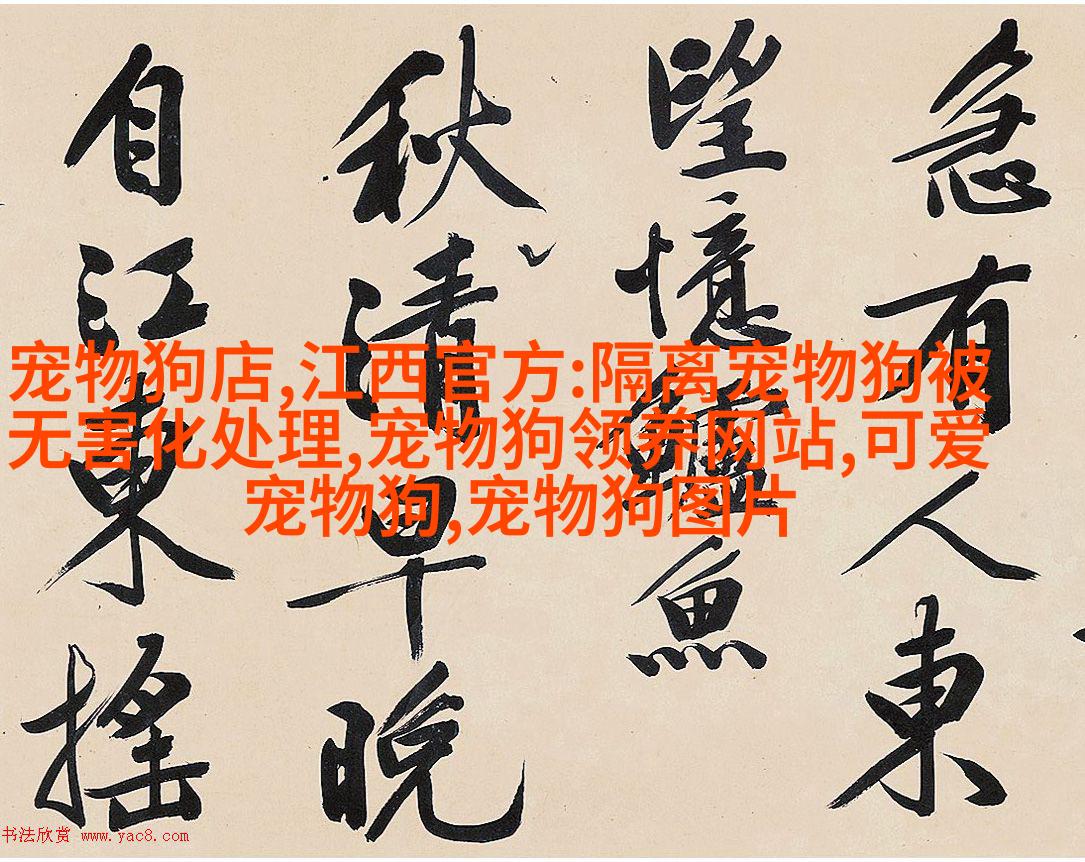 急有人東
望憶鱸魚
秋清早晚
自江東搖
宠物狗店,江西官方:隔离宠物狗被
无害化处理,宠物狗领养网站,可爱
宠物狗,宠物狗图片
书法欣赏 www.yac8.com